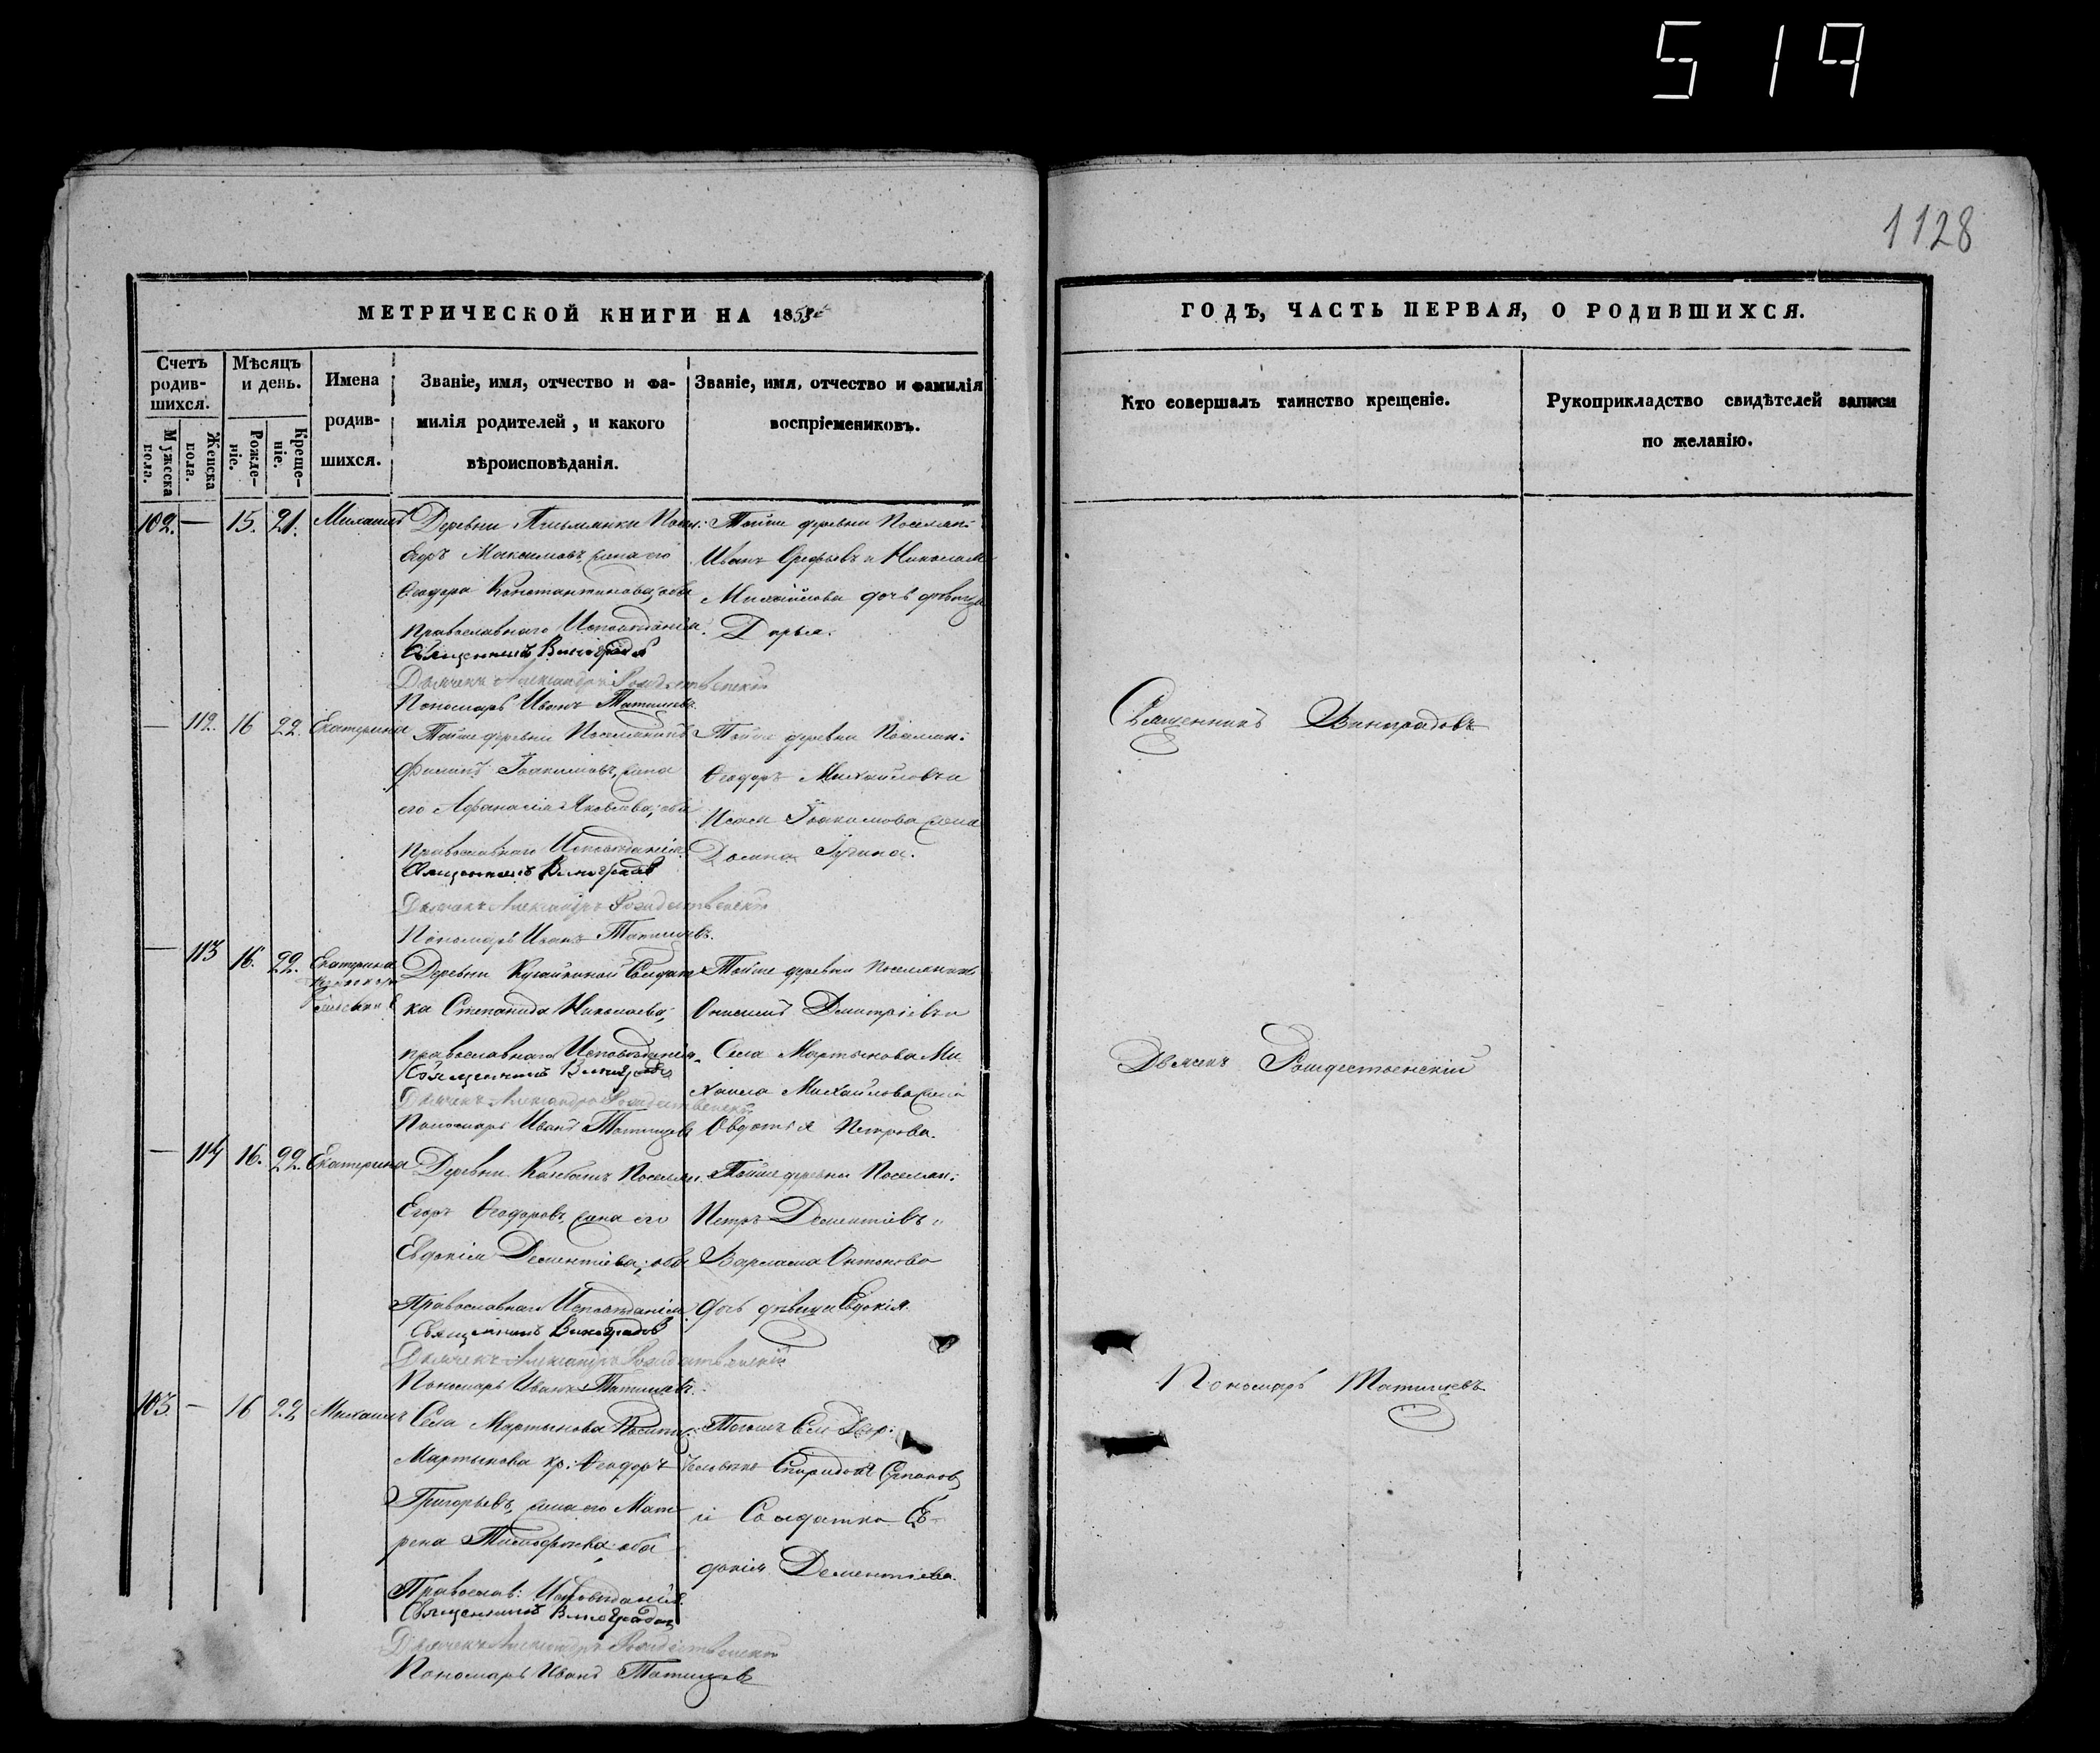 519
1128
МЕТРИЧЕСКОЙ КНИГИ НА 1853й
ГОДЪ, ЧАСТЬ ПЕРВАЯ, О РОДИВШИХСЯ.
Счетъ родившихся.
Мужеска пола.
Женска пола.
Мѣсяцъ и день.
Рожденіе.
Крещеніе.
Имена родившихся.
Званіе, имя, отчество и фамилія родителей, и какого вѣроисповѣданія.
Званіе, имя, отчество и фамилія воспріемниковъ.
Кто совершалъ таинство крещеніе.
Рукоприкладство свидѣтелей записи по желанію.
102. — 15. 21. Михаилъ
Деревни
Егоръ Максимовъ, жена его
Ѳеодора Константинова, оба
Православнаго Исповѣданія.
Священникъ Виноградовъ
Дьячекъ Александръ Рождественскій
Пономарь Иванъ Татищевъ
Тойже деревни Поселян:
Иванъ Ефр
Михайлова дочь дѣвица
Дарья.
— 112. 16 22. Екатерина
Тойже деревни Поселянинъ
Филипъ Іоакимовъ, жена
его Афанасія Яковлева, оба
Православнаго Исповѣданія.
Священникъ Виноградовъ
Дьячекъ Александръ Рождественскій
Пономарь Иванъ Татищевъ.
Тойже деревни Поселян:
Ѳеодоръ Михайловъ и
Исаи Іоакимова жена
Домна
— 113 16. 22. Екатерина
Деревни Солдат
ка Степанида Николаева,
православнаго Исповѣданія.
Священникъ Виноградовъ
Дьячекъ Александръ Рождественскій
Пономарь Иванъ Татищевъ
Тойже деревни Поселянинъ
Онисимъ Димитріевъ и
Села Мартынова Ми
хаила Михайлова жена
Овдотія Петрова.
— 114 16. 22. Екатерина
Деревни Поселян.
Егоръ Ѳеодоровъ, жена его
Евдокія Дементіева; оба
Православнаго Исповѣданія.
Священникъ Виноградовъ
Дьячекъ Александръ Рождественскій
Пономарь Иванъ Татищевъ.
Тойже деревни Поселян:
Петръ Дементіевъ и
Варлама Антонова
дочь дѣвица Евдокія.
103. — 16 22 Михаилъ
Села Мартынова
Мартынова кр: Ѳеодоръ
Григорьевъ, жена его Мат
рена Тимофеева оба
Православ: Исповѣданія.
Священникъ Виноградовъ
Дьячекъ Александръ Рождественскій
Пономарь Иванъ Татищевъ
Тогожъ Села Двор:
Спиридонъ Степановъ
и Солдатка Ев
докія Дементіева.
Священникъ Виноградовъ
Дьячекъ Рождественскій
Пономарь Татищевъ